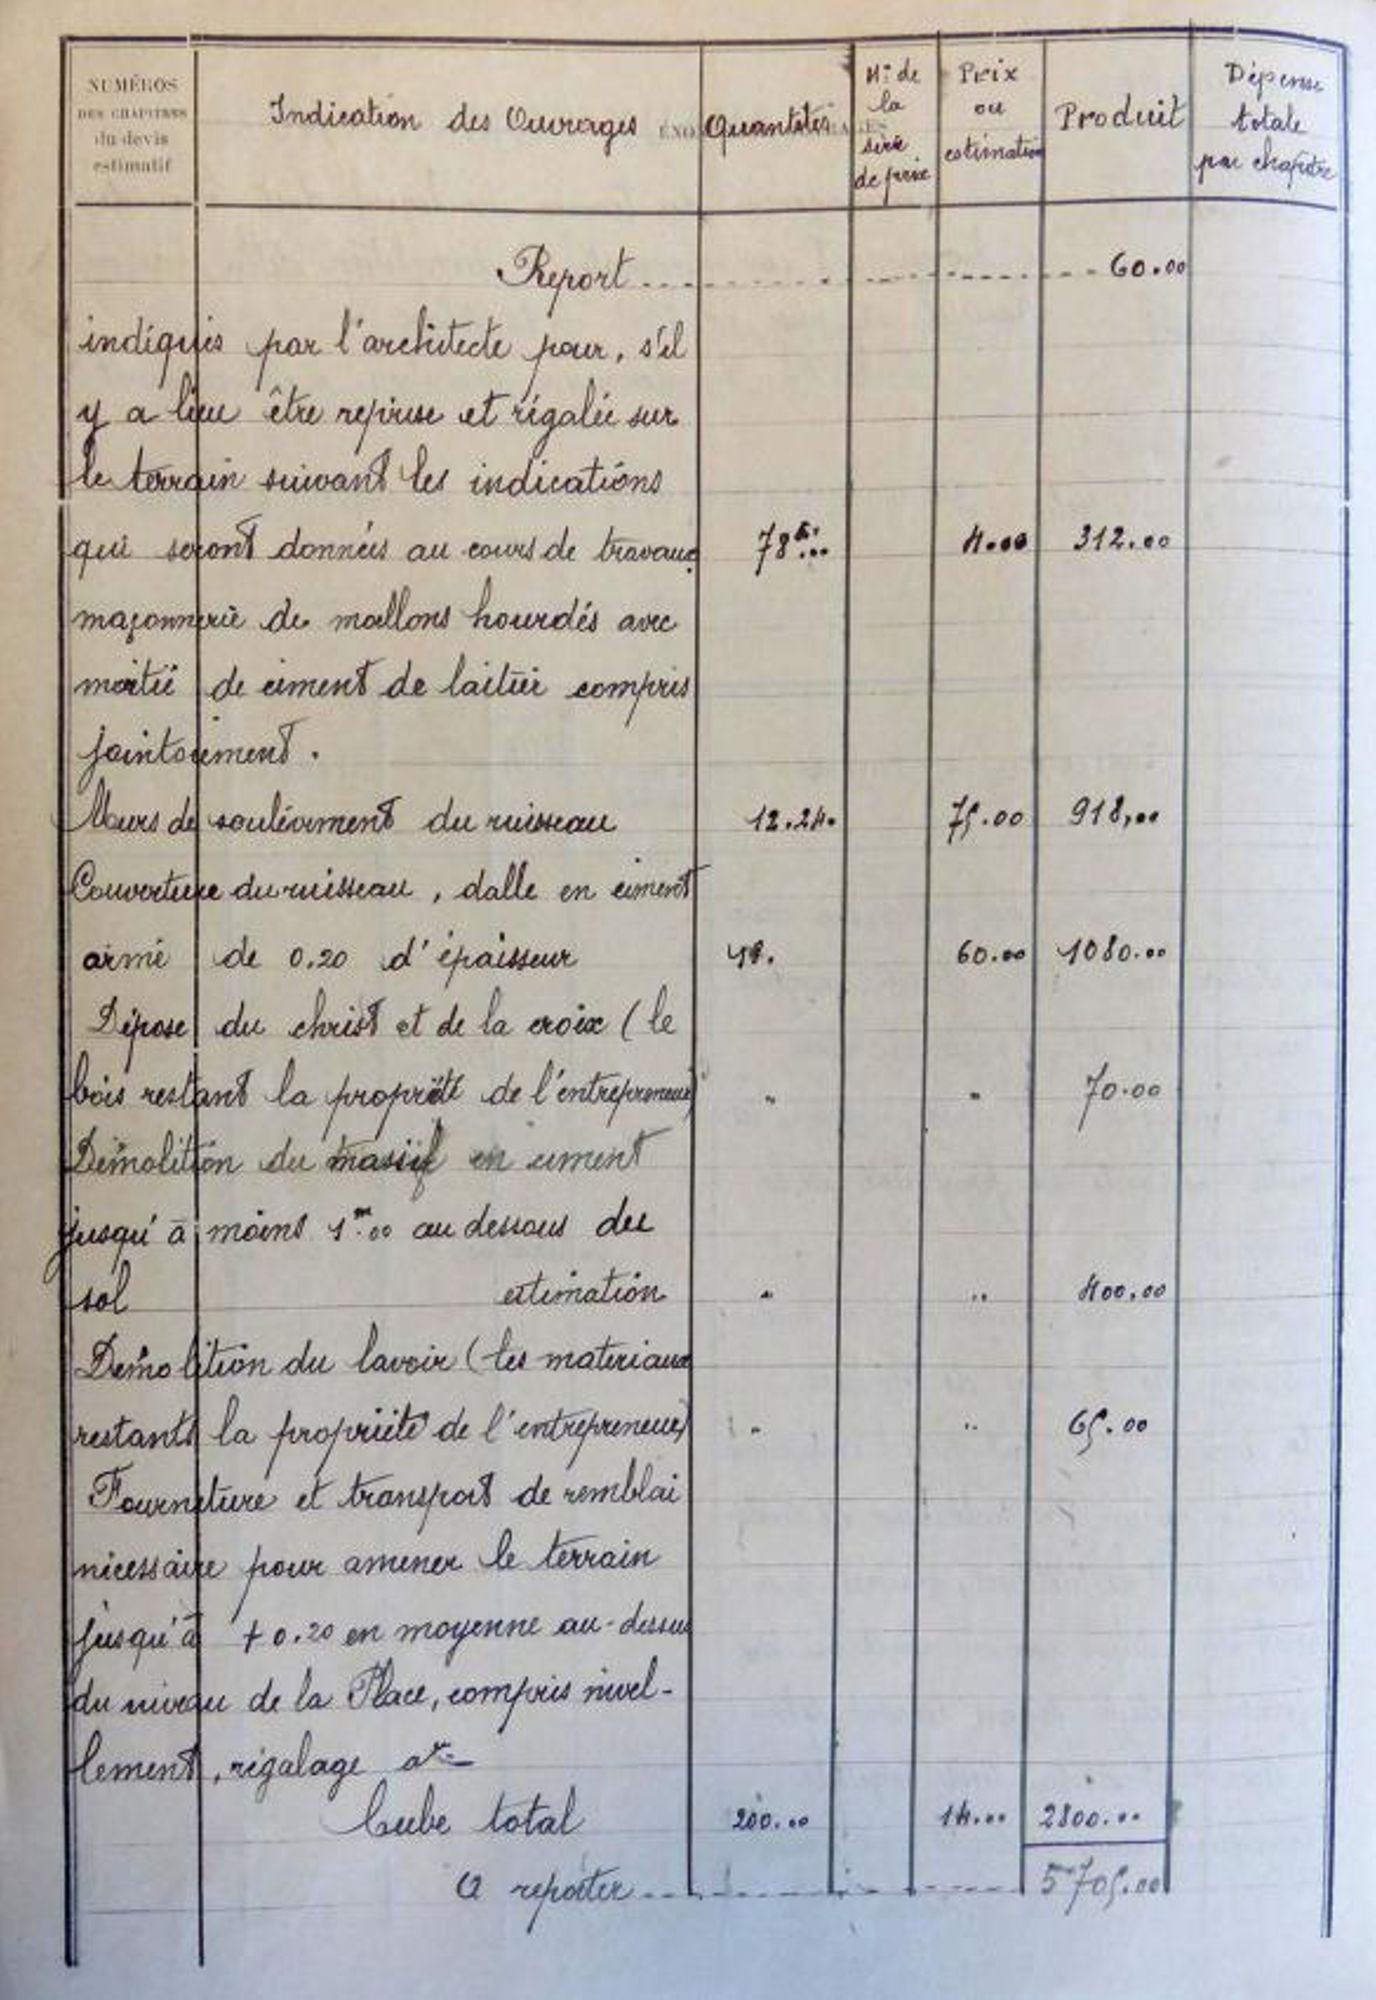 NUMÉROS
DES CHAPITRES
du devis
estimatif
Indication des Ouvrages
Quantités
Nº de
la
série
de prix
Prix
ou
estimation
Produit
Dépense
totale
par chapitre
Report 60.00
indiqués par l'architecte pour, s'il
y a lieu être reprise et régalée sur
le terrain suivant les indications
qui seront données au cours de travaux 78.00 4.00 312.00
maçonnerie de mallons hourdés avec
moitié de ciment de laitier compris
jointoiement.
Murs de soulèvement du ruisseau 12.24. 75.00 918,00
Couverture du ruisseau, dalle en ciment
armé de 0.20 d'épaisseur 18. 60.00 1080.00
Dépose du christ et de la croix (le
bois restant la propriété de l'entrepreneur) " " 70.00
Démolition du massif en ciment
jusqu'à moins 1m.00 au dessous du
sol estimation " " 400.00
Démolition du lavoir (les materiaux
restants la propriété de l'entrepreneur) " " 65.00
Fourniture et transport de remblai
nécessaire pour amener le terrain
jusqu'à + 0.20 en moyenne au-dessus
du niveau de la Place, compris nivel-
lement, régalage
Cube total 200.00 14.00 2800.00
A reporter 5705.00